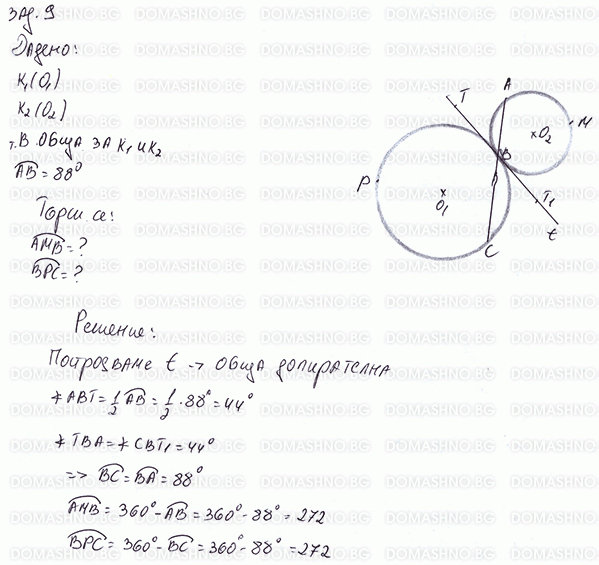 Зад. 9
Дадено:
K₁(O₁)
K₂(O₂)
т.B обща за K₁ и K₂
AB = 88°
Търси се:
AMB = ?
BPC = ?
T
A
M
O₂
B
P
O₁
T₁
C
t
Решение:
Построяваме t → обща допирателна
∢ABT = 1/2 AB = 1/2 · 88° = 44°
∢TBA = ∢CBT₁ = 44°
=> BC = BA = 88°
AMB = 360° - AB = 360° - 88° = 272
BPC = 360° - BC = 360° - 88° = 272
DOMASHNO.BG